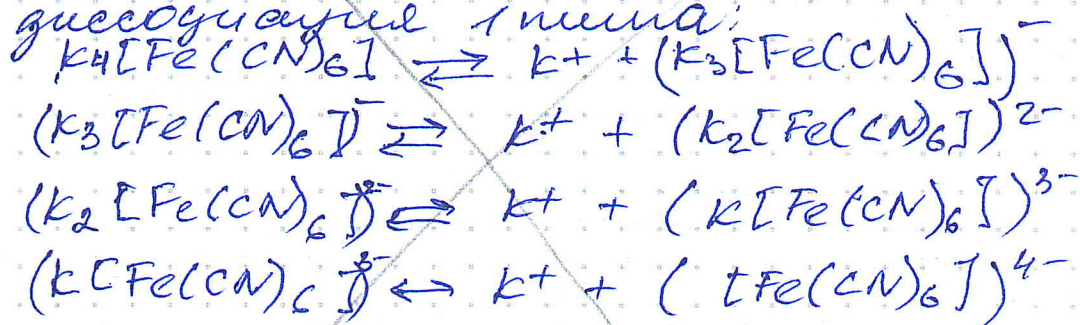 диссоциация 1 типа:
K4[Fe(CN)6] ⇄ K+ + (K3[Fe(CN)6])⁻
(K3[Fe(CN)6])⁻ ⇄ K+ + (K2[Fe(CN)6])²⁻
(K2[Fe(CN)6])²⁻ ⇄ K+ + (K[Fe(CN)6])³⁻
(K[Fe(CN)6])³⁻ ↔ K+ + ([Fe(CN)6])⁴⁻